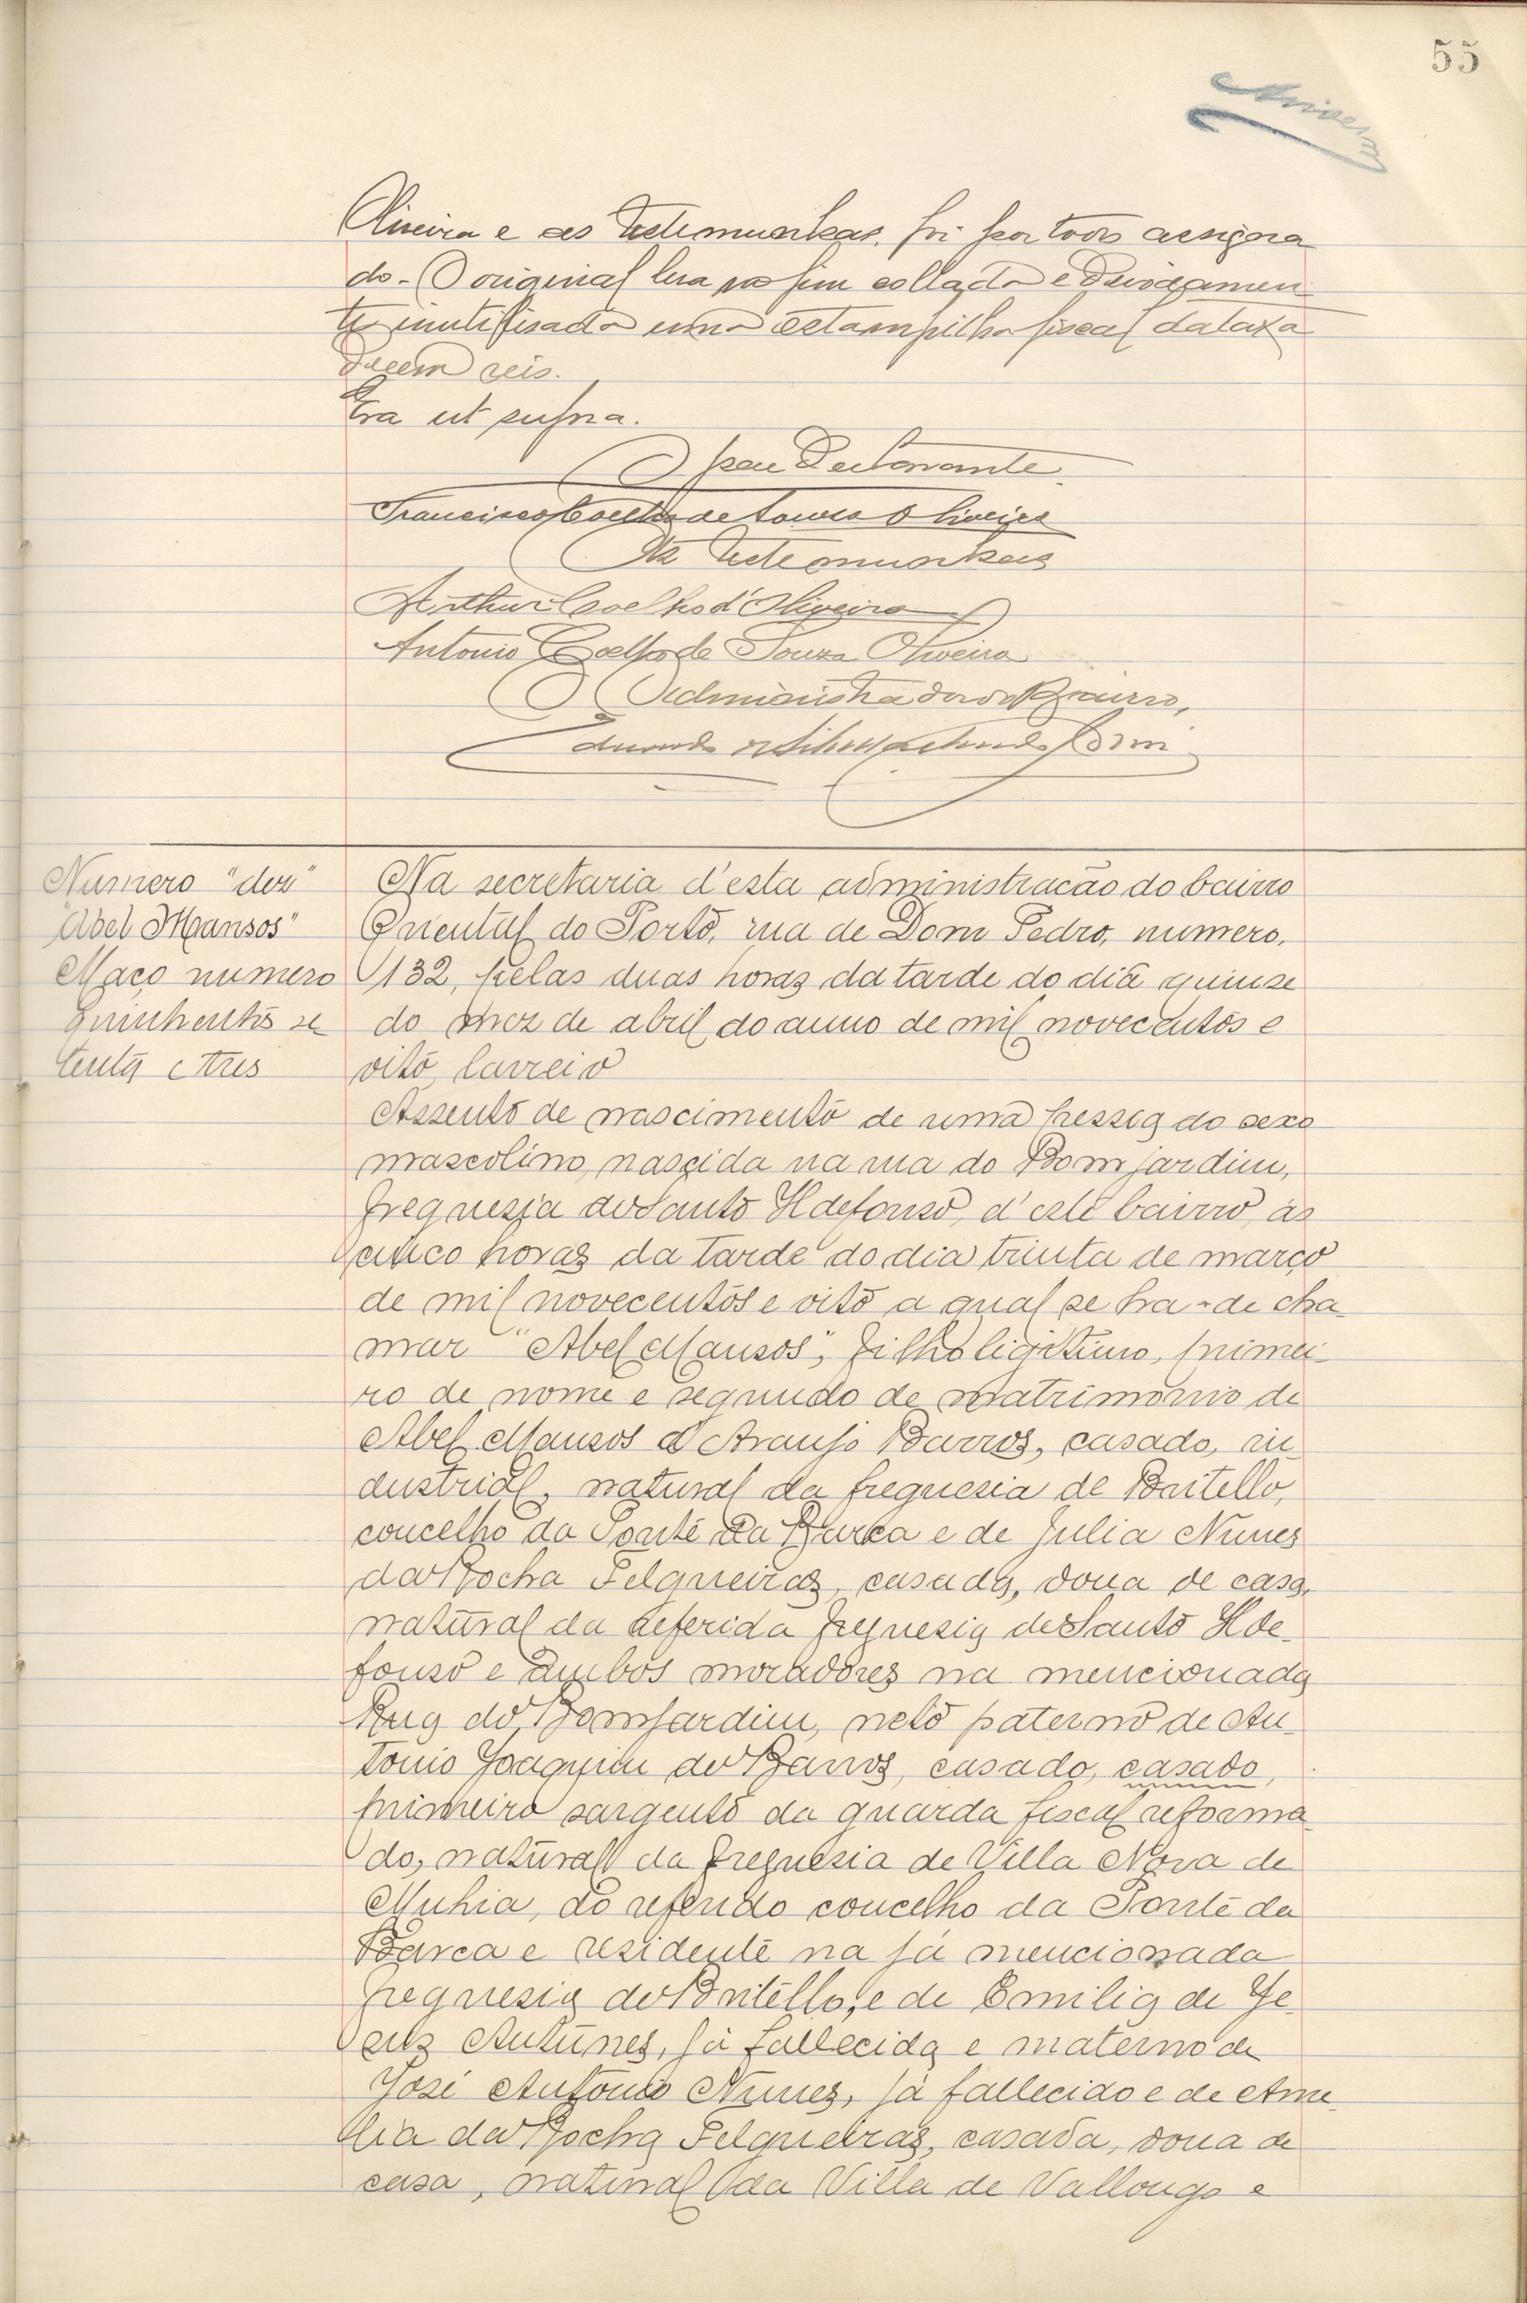 55
Oliveira e as testemunhas, foi por todos assigna
do. O original leva no fim collada e devidamen
te inutilisada uma estampilha fiscal da taxa
de cem reis.
Era ut supra.
O pae Declarante
Francisco Coelho de Souza Oliveira
As testemunhas
Arthur Coelho d'Oliveira
Antonio Coelho de Souza Oliveira
O Administrador do Bairro,
Numero "dez"
"Abel Mansos"
Maço numero
quinhentos se
tenta e tres
Na secretaria d'esta administracão do bairro
Oriental do Porto, rua de Dom Pedro, numero,
132, pelas duas horas da tarde do dia quinse
do mez de abril do anno de mil novecentos e
oito, lavrei o
Assento de nascimento de uma pessoa do sexo
mascolino, nascida na rua do Bomjardim,
freguesia de Santo Ildefonso, d'este bairro, ás
cinco horas da tarde do dia trinta de março
de mil novecentos e oito a qual se ha-de cha-
mar "Abel Mansos", filho ligitimo, primei-
ro de nome e segundo de matrimonio de
Abel Mansos d'Araujo Barros, casado, in-
dustrial, natural da freguesia de Britello,
concelho da Ponte da Barca e de Julia Nunes
da Rocha Felgueiras, casada, dona de casa,
natural da referida freguesia de Santo Ilde-
fonso e ambos moradores na mencionada
Rua do Bomjardim, neto paterno de An-
tonio Joaquim de Barros, casado, casado,
primeiro sargento da guarda fiscal reforma-
do, natural da freguesia de Villa Nova de
Muhia, do referido concelho da Ponte da
Barca e residente na já mencionada
freguesia de Britello, e de Emilia de Je-
sus Antunes, já fallecida e materno de
José Antonio Nunes, já fallecido e de Ame-
lia da Rocha Felgueiras, casada, dona de
casa, natural da Villa de Vallongo e